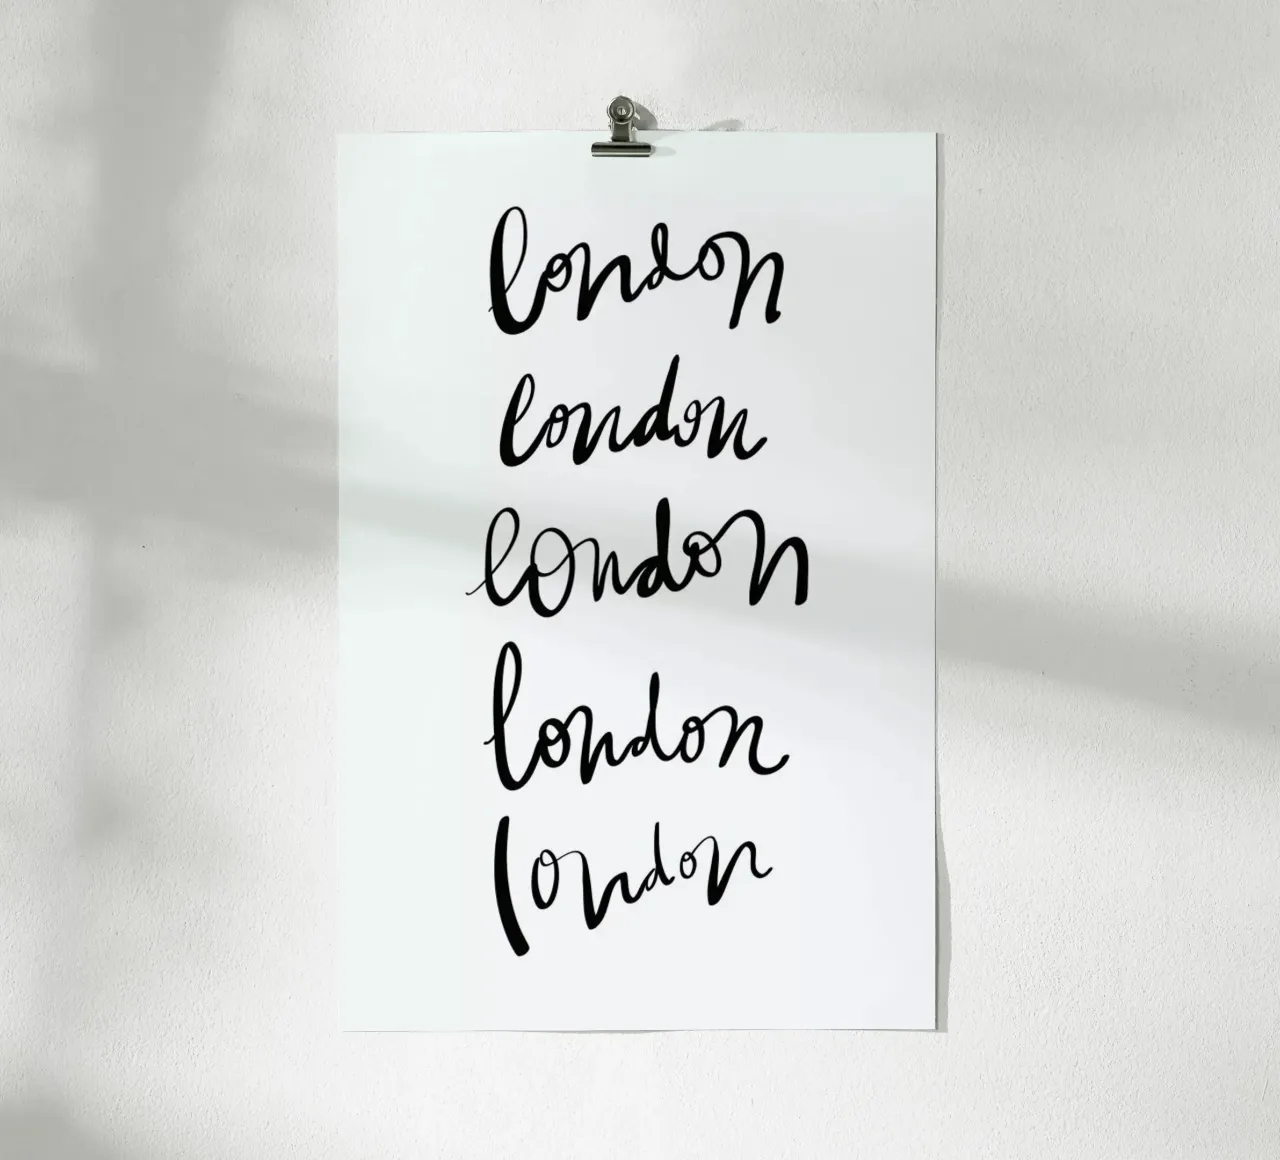 london
london
london
london
london